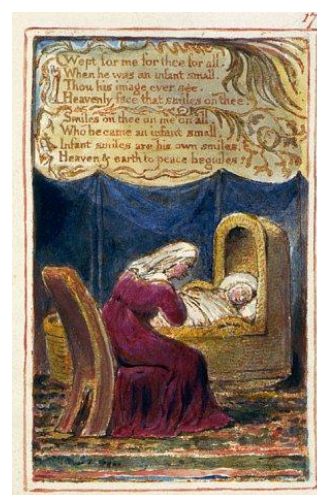 17
Wept for me for thee for all.
When he was an infant small.
Thou his image ever see.
Heavenly face that smiles on thee.
Smiles on thee on me on all,
Who became an infant small,
Infant smiles are his own smiles.
Heaven & earth to peace beguiles.